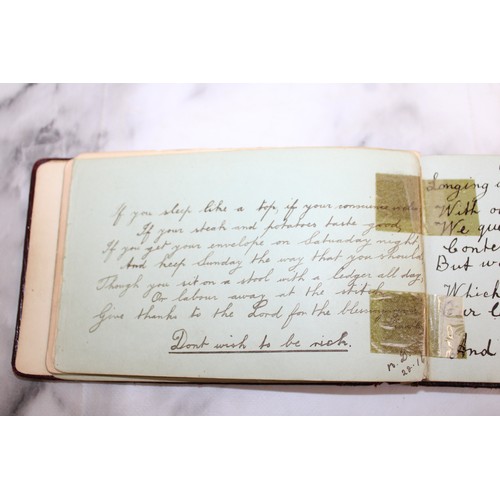 If you sleep like a top, if your conscience
If your steak and potatoes taste good
If you get your envelope on Saturday night,
And keep Sunday the way that you should
Though you sit on a stool with a ledger all day
Or labour away at the stitch
Give thanks to the Lord for the blessings
Dont wish to be rich.
Longing
With
We
But
Which
And